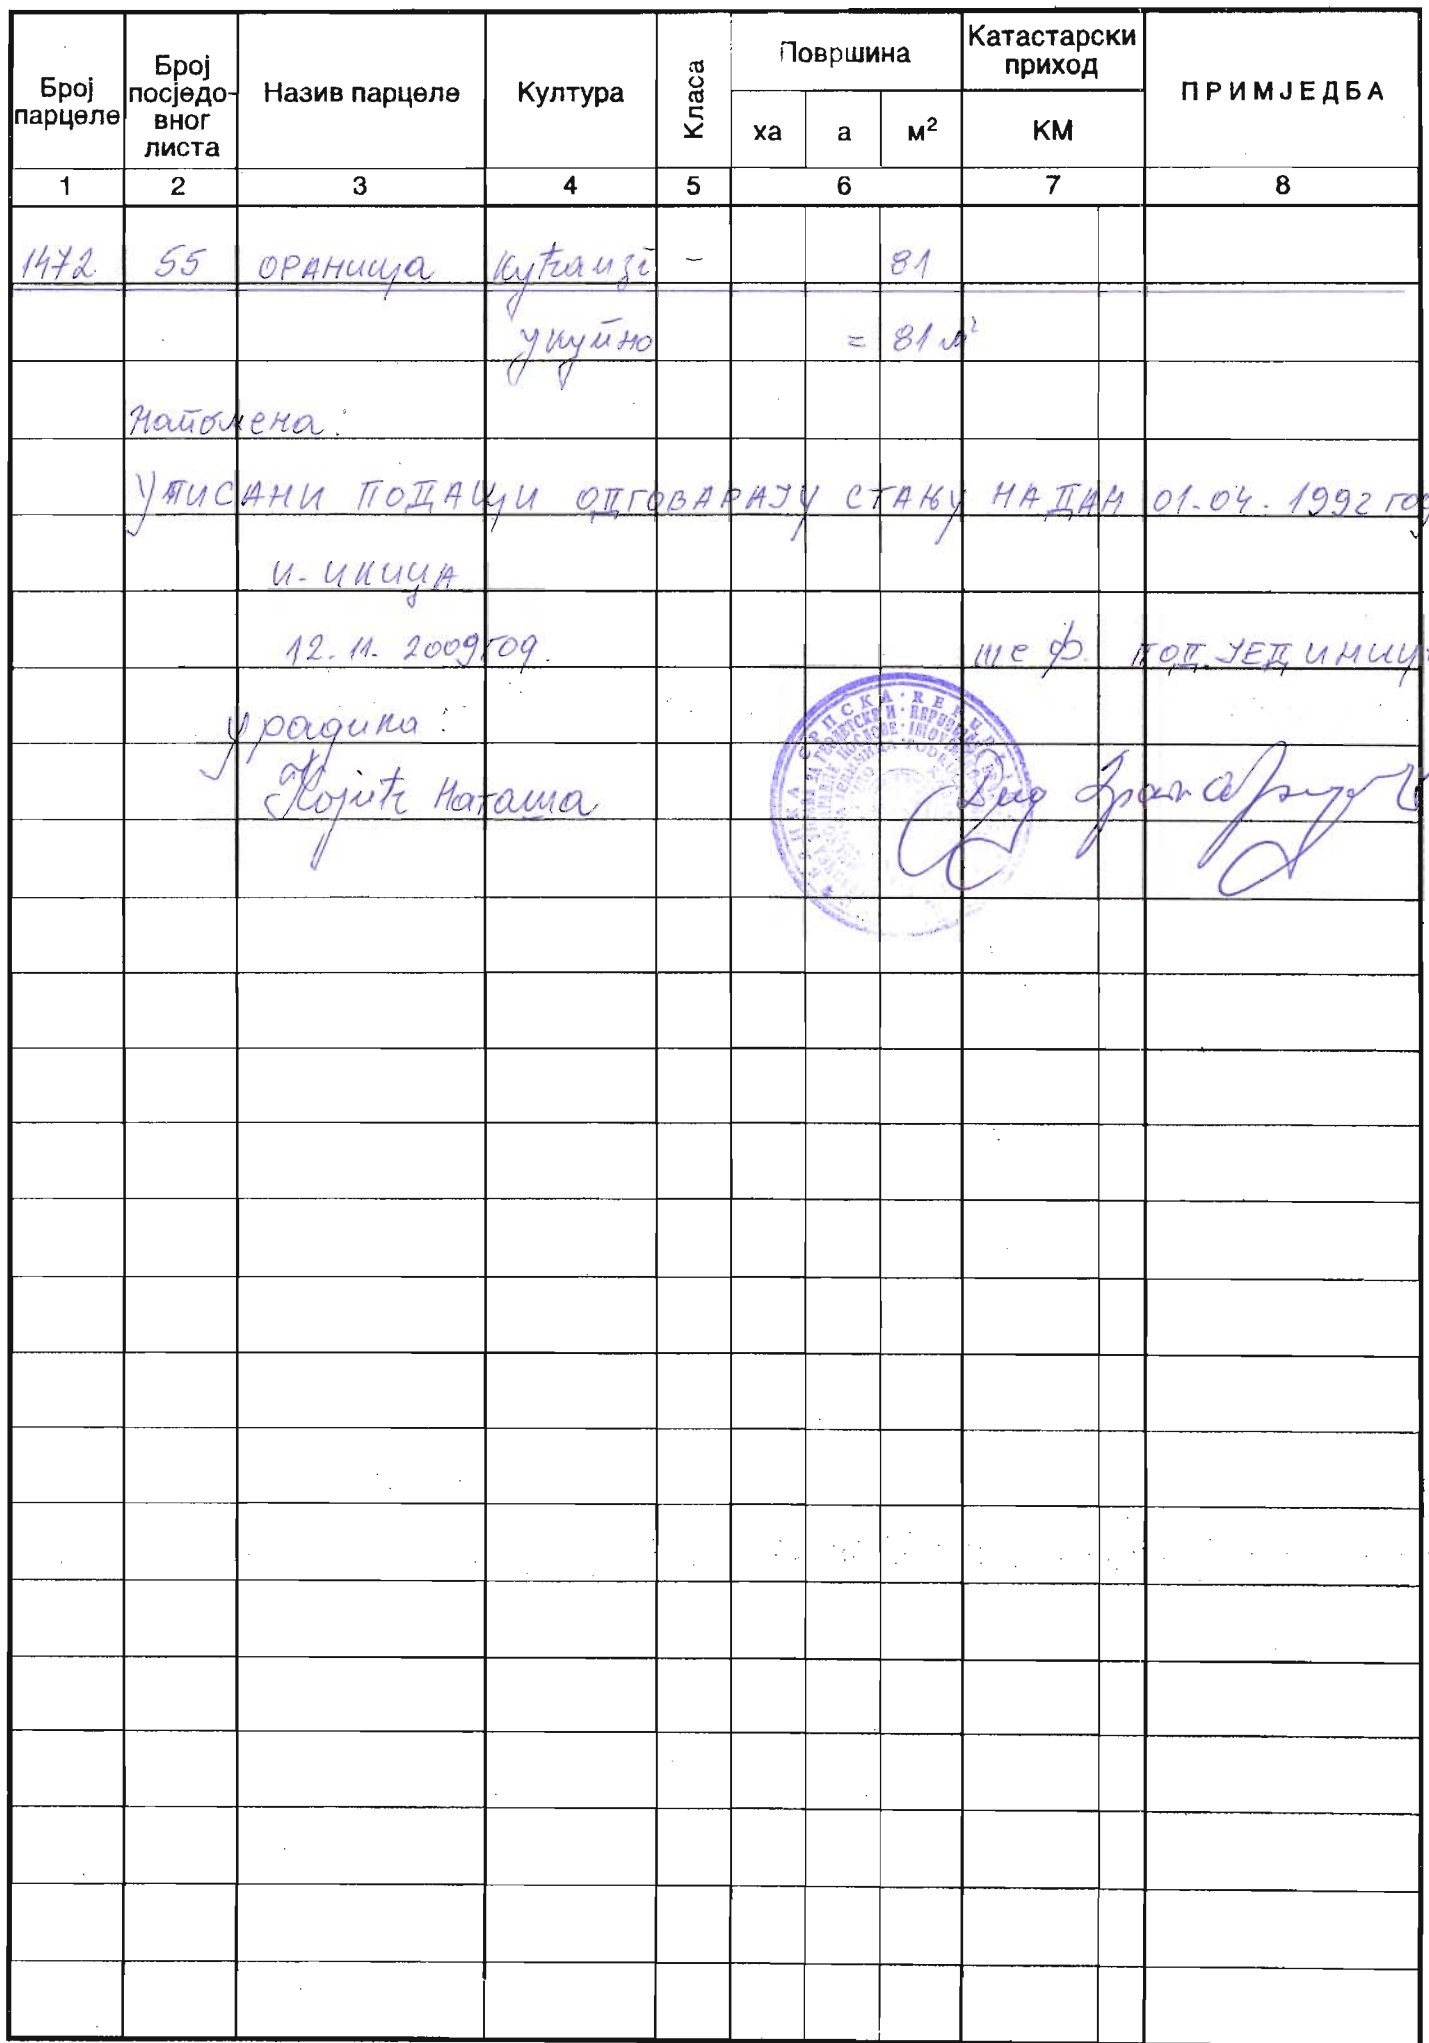 Број парцеле
Број посједо-вног листа
Назив парцеле
Култура
Класа
Површина
Катастарски приход
ПРИМЈЕДБА
ха а м² КМ
1 2 3 4 5 6 7 8
1472 55 ОРАНИЦА кућаизг - 81
укупно = 81 м²
Напомена:
УПИСАНИ ПОДАЦИ ОДГОВАРАЈУ СТАЊУ НА ДАН 01.04.1992 год
12.11.2009 год.
шеф ПОД. ЈЕДИНИЦ
урадила:
Којић Наташа